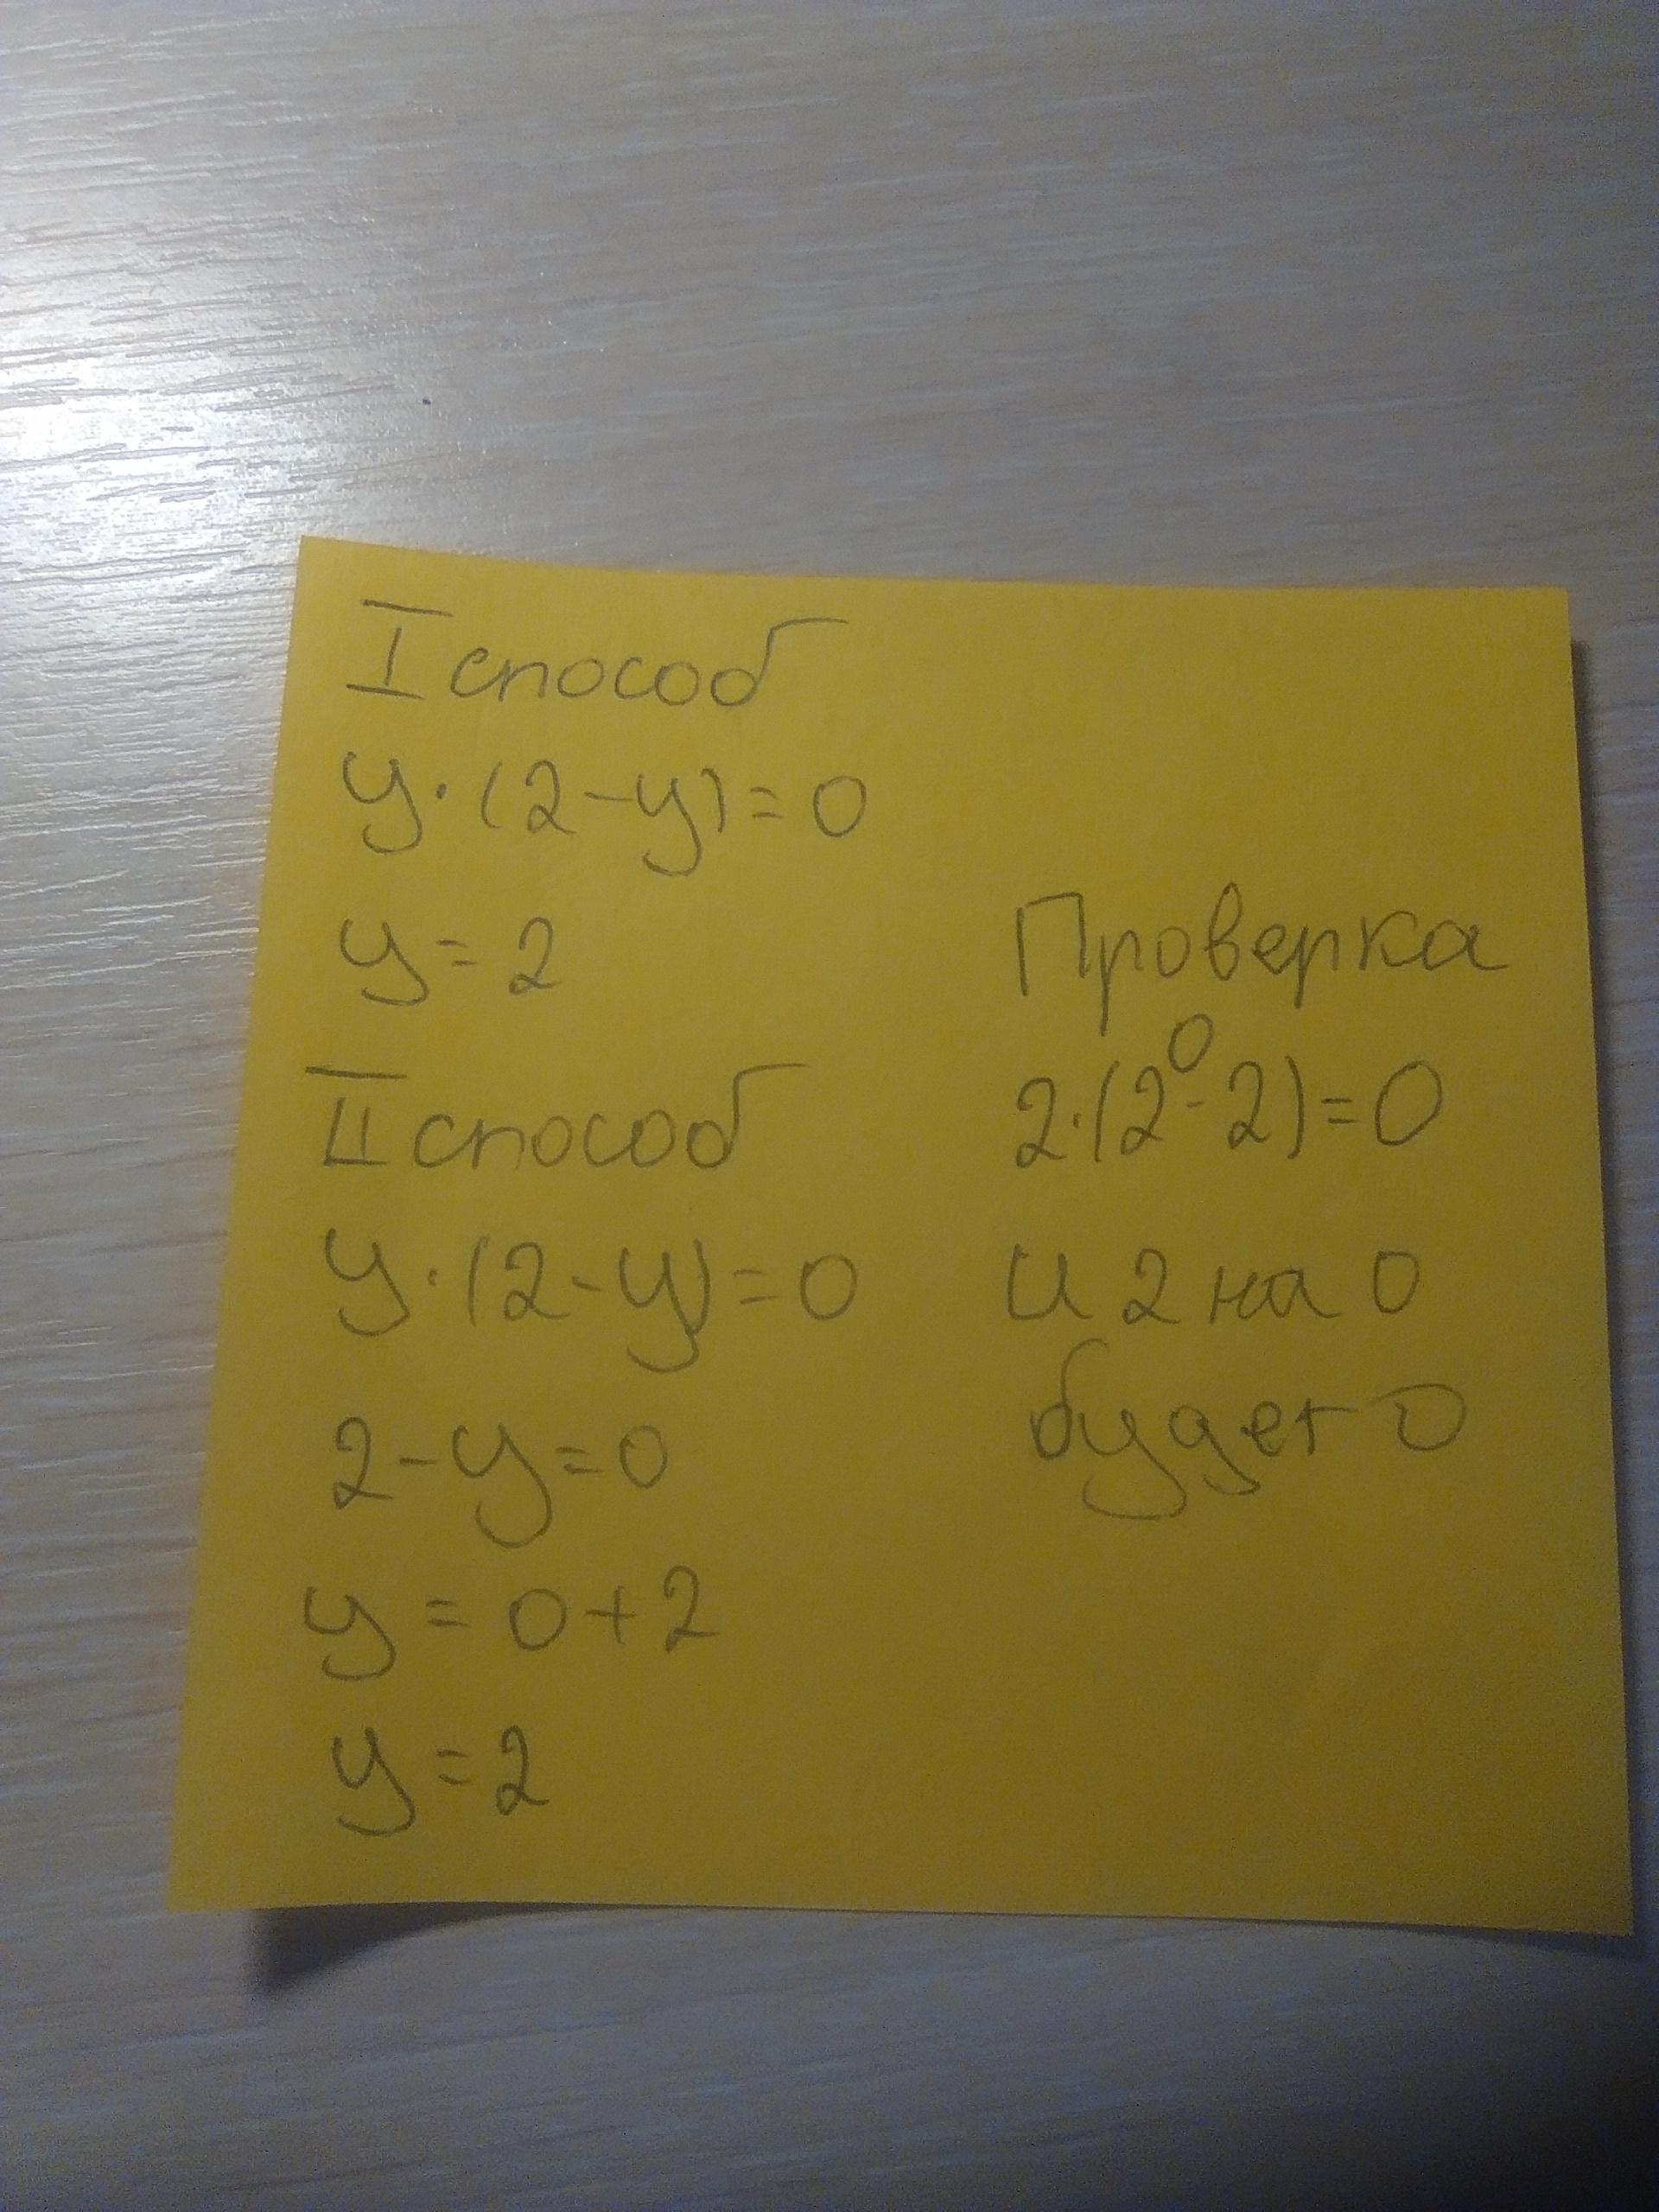 I способ
у·(2-у)=0
у=2
II способ
у·(2-у)=0
2-у=0
у=0+2
у=2
Проверка
0
2·(2-2)=0
и 2 на 0
будет 0